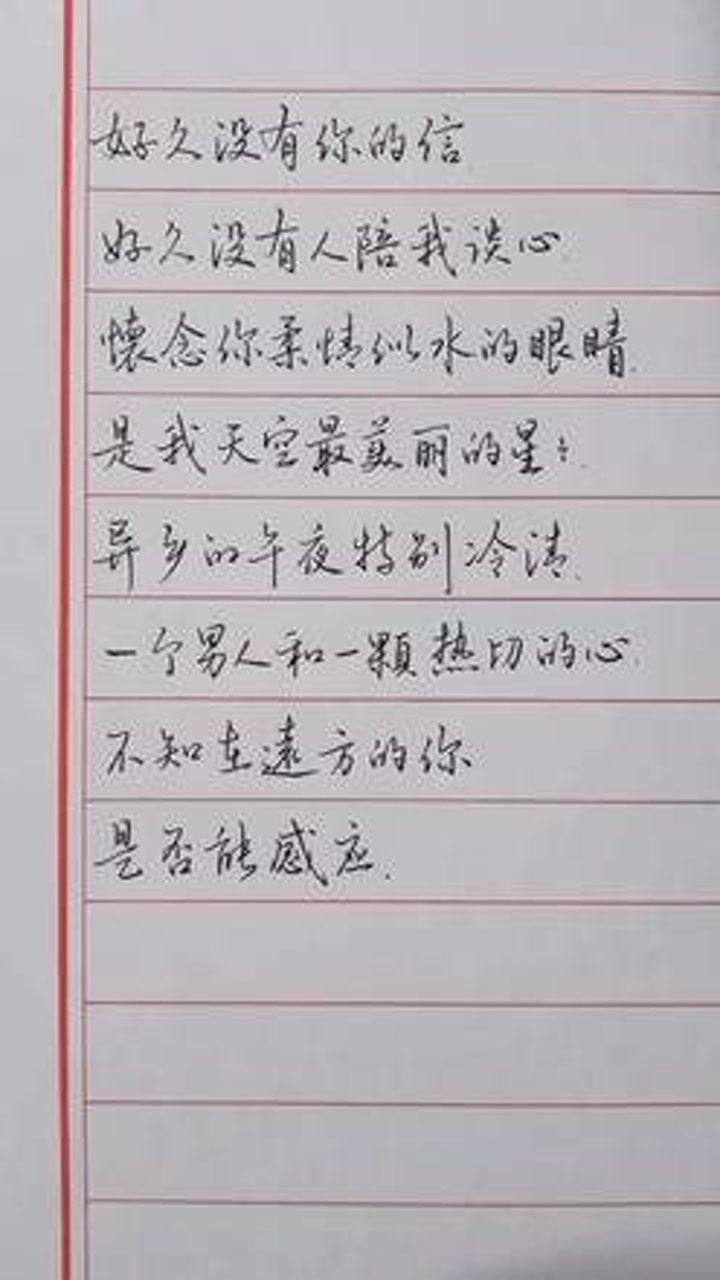 好久没有你的信
好久没有人陪我谈心
懷念你柔情似水的眼睛.
是我天空最美丽的星:.
异乡的午夜特别冷清.
一个男人和一颗热切的心.
不知在遠方的你
是否能感应.